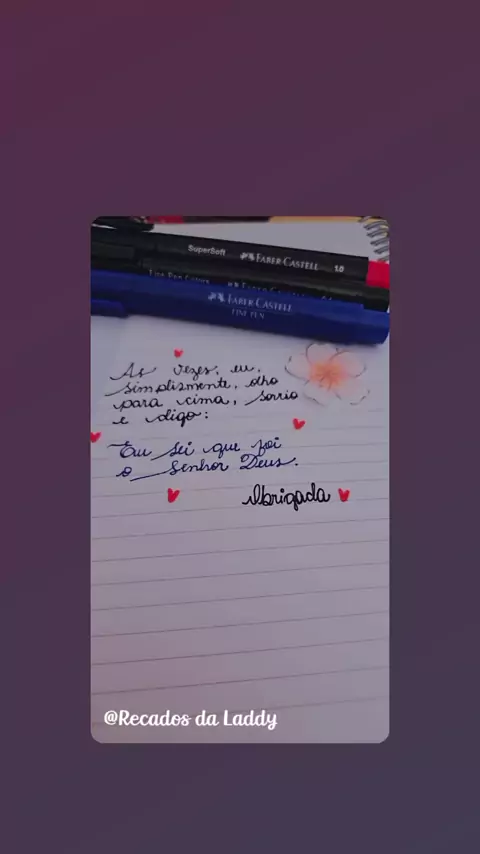 SuperSoft FABER-CASTELL 1.0
FABER-CASTELL
FINE PEN
As vezes, eu,
simplismente, olho
para cima, sorrio
e digo:
Eu sei que foi
o Senhor Deus.
Obrigada
@Recados da Laddy